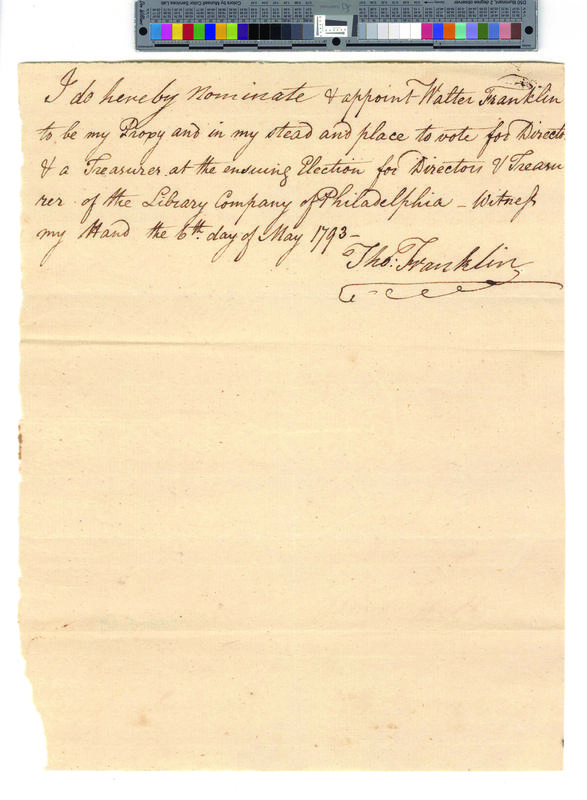 I do hereby Nominate & appoint Walter Franklin
to be my Proxy and in my stead and place to vote for Directo
& a Treasurer at the ensuing Election for Directors & Treasu
rer of the Library Company of Philadelphia – Witness
my Hand the 6th day of May 1793–
Tho: Franklin